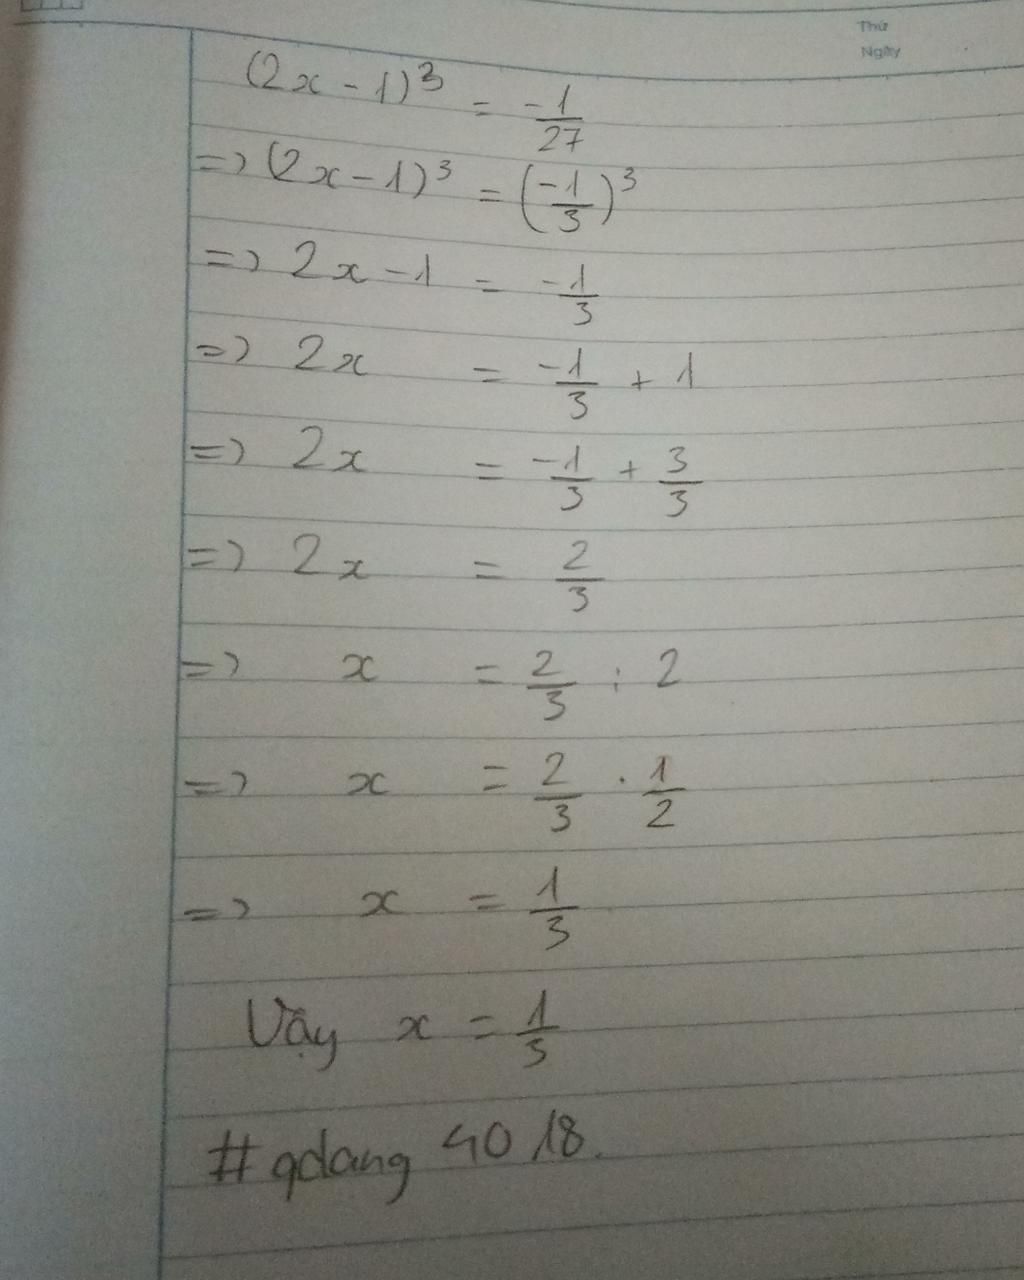 Thứ
Ngày
(2x - 1)³ = -1/27
=> (2x - 1)³ = (-1/3)³
=> 2x - 1 = -1/3
=> 2x = -1/3 + 1
=> 2x = -1/3 + 3/3
=> 2x = 2/3
=> x = 2/3 : 2
=> x = 2/3 . 1/2
=> x = 1/3
Vậy x = 1/3
#qdang 4018.